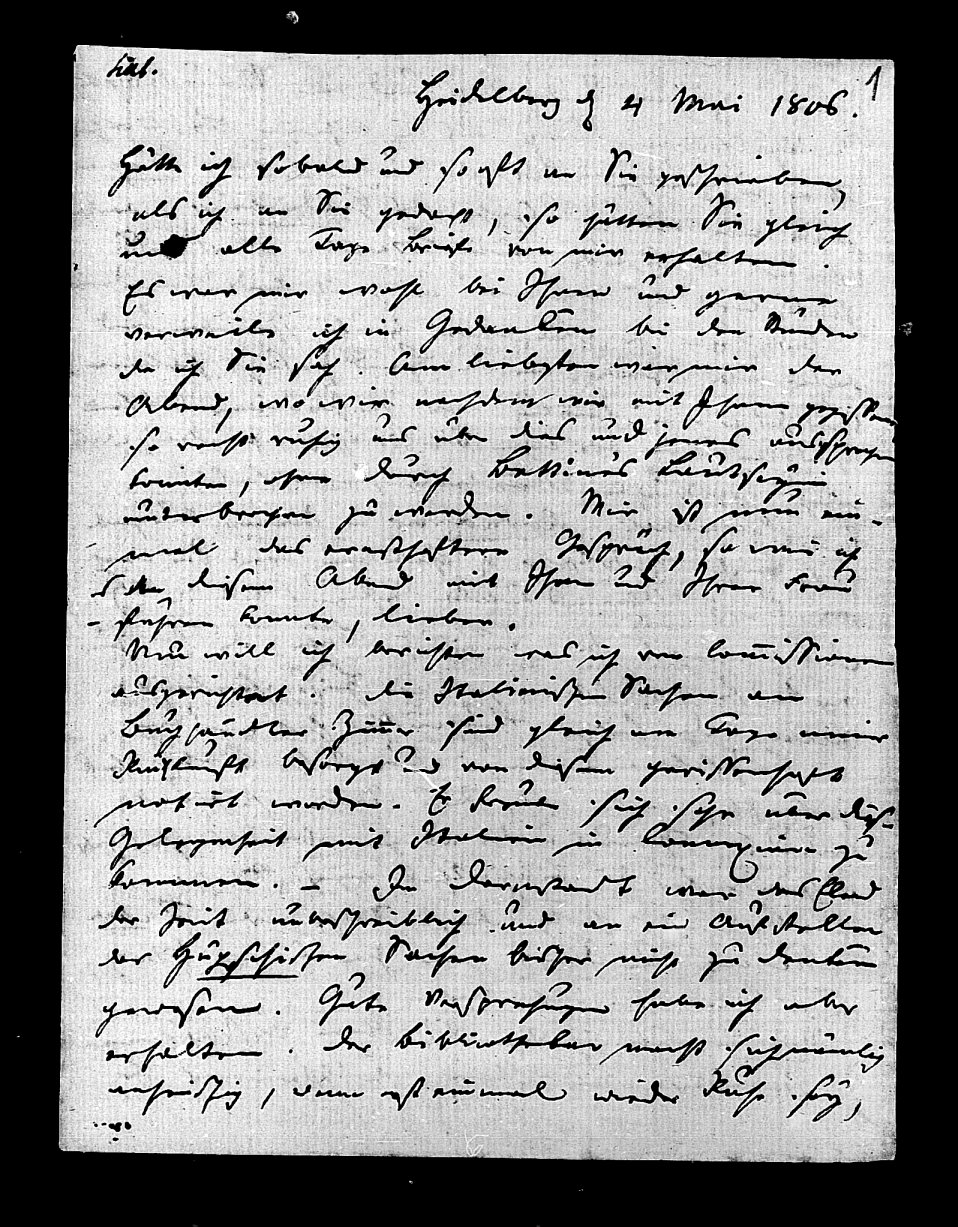 1
Heidelberg d 4 Mai 1806.
Hätte ich sobald und so oft an Sie geschrieben,
als ich an Sie gedacht, so hätten Sie gleich
und alle Tage Briefe von mir erhalten.
Es war mir wohl bei Ihnen und gerne
verweile ich in Gedanken bei den Stunden
da ich Sie sah. Am liebsten war mir der
Abend, wo wir nachdem wir mit Ihnen gegessen
so recht ruhig uns über dies und jenes aussprechen
konnten, ohne durch Bettinens
unterbrochen zu werden. Mir ist nun ein-
mal das ernsthaftere Gespräch, so wie ich
es an diesem Abend mit Ihnen und Ihrer Frau
führen konnte, lieber.
Nun will ich berichten was ich von Commissionen
ausgerichtet. die Italienischen Sachen an
Buchhändler Zimmer sind gleich am Tage meiner
Rückkunft besorgt und von diesem gewissenhaft
notirt worden. Er freute sich sehr über diese
Gelegenheit mit Italien in Connexion zu
kommen. – In Darmstadt war das Elend
der Zeit unbeschreiblich und an ein Aufstellen
der Hüpschischen Sachen bisher nicht zu denken
gewesen. Gute Versprechungen habe ich aber
erhalten. Der Bibliothekar macht sich nämlich
anheischig, wenn erst einmal wieder Ruhe sey,